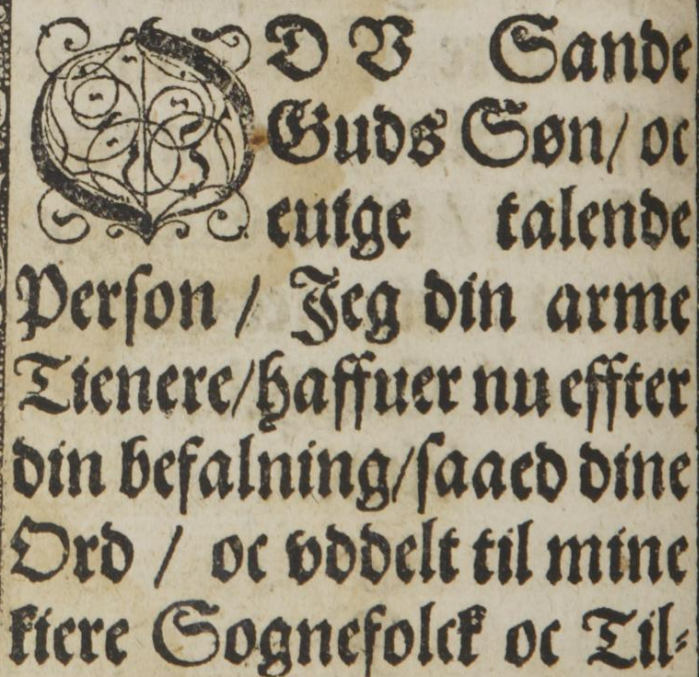 O D V Sande
Guds Søn/ oc
euige talende
Person / Jeg din arme
Tienere/haffuer nu effter
din befalning/saaed dine
Ord / oc vddelt til mine
kiere Sognefolck oc Til-